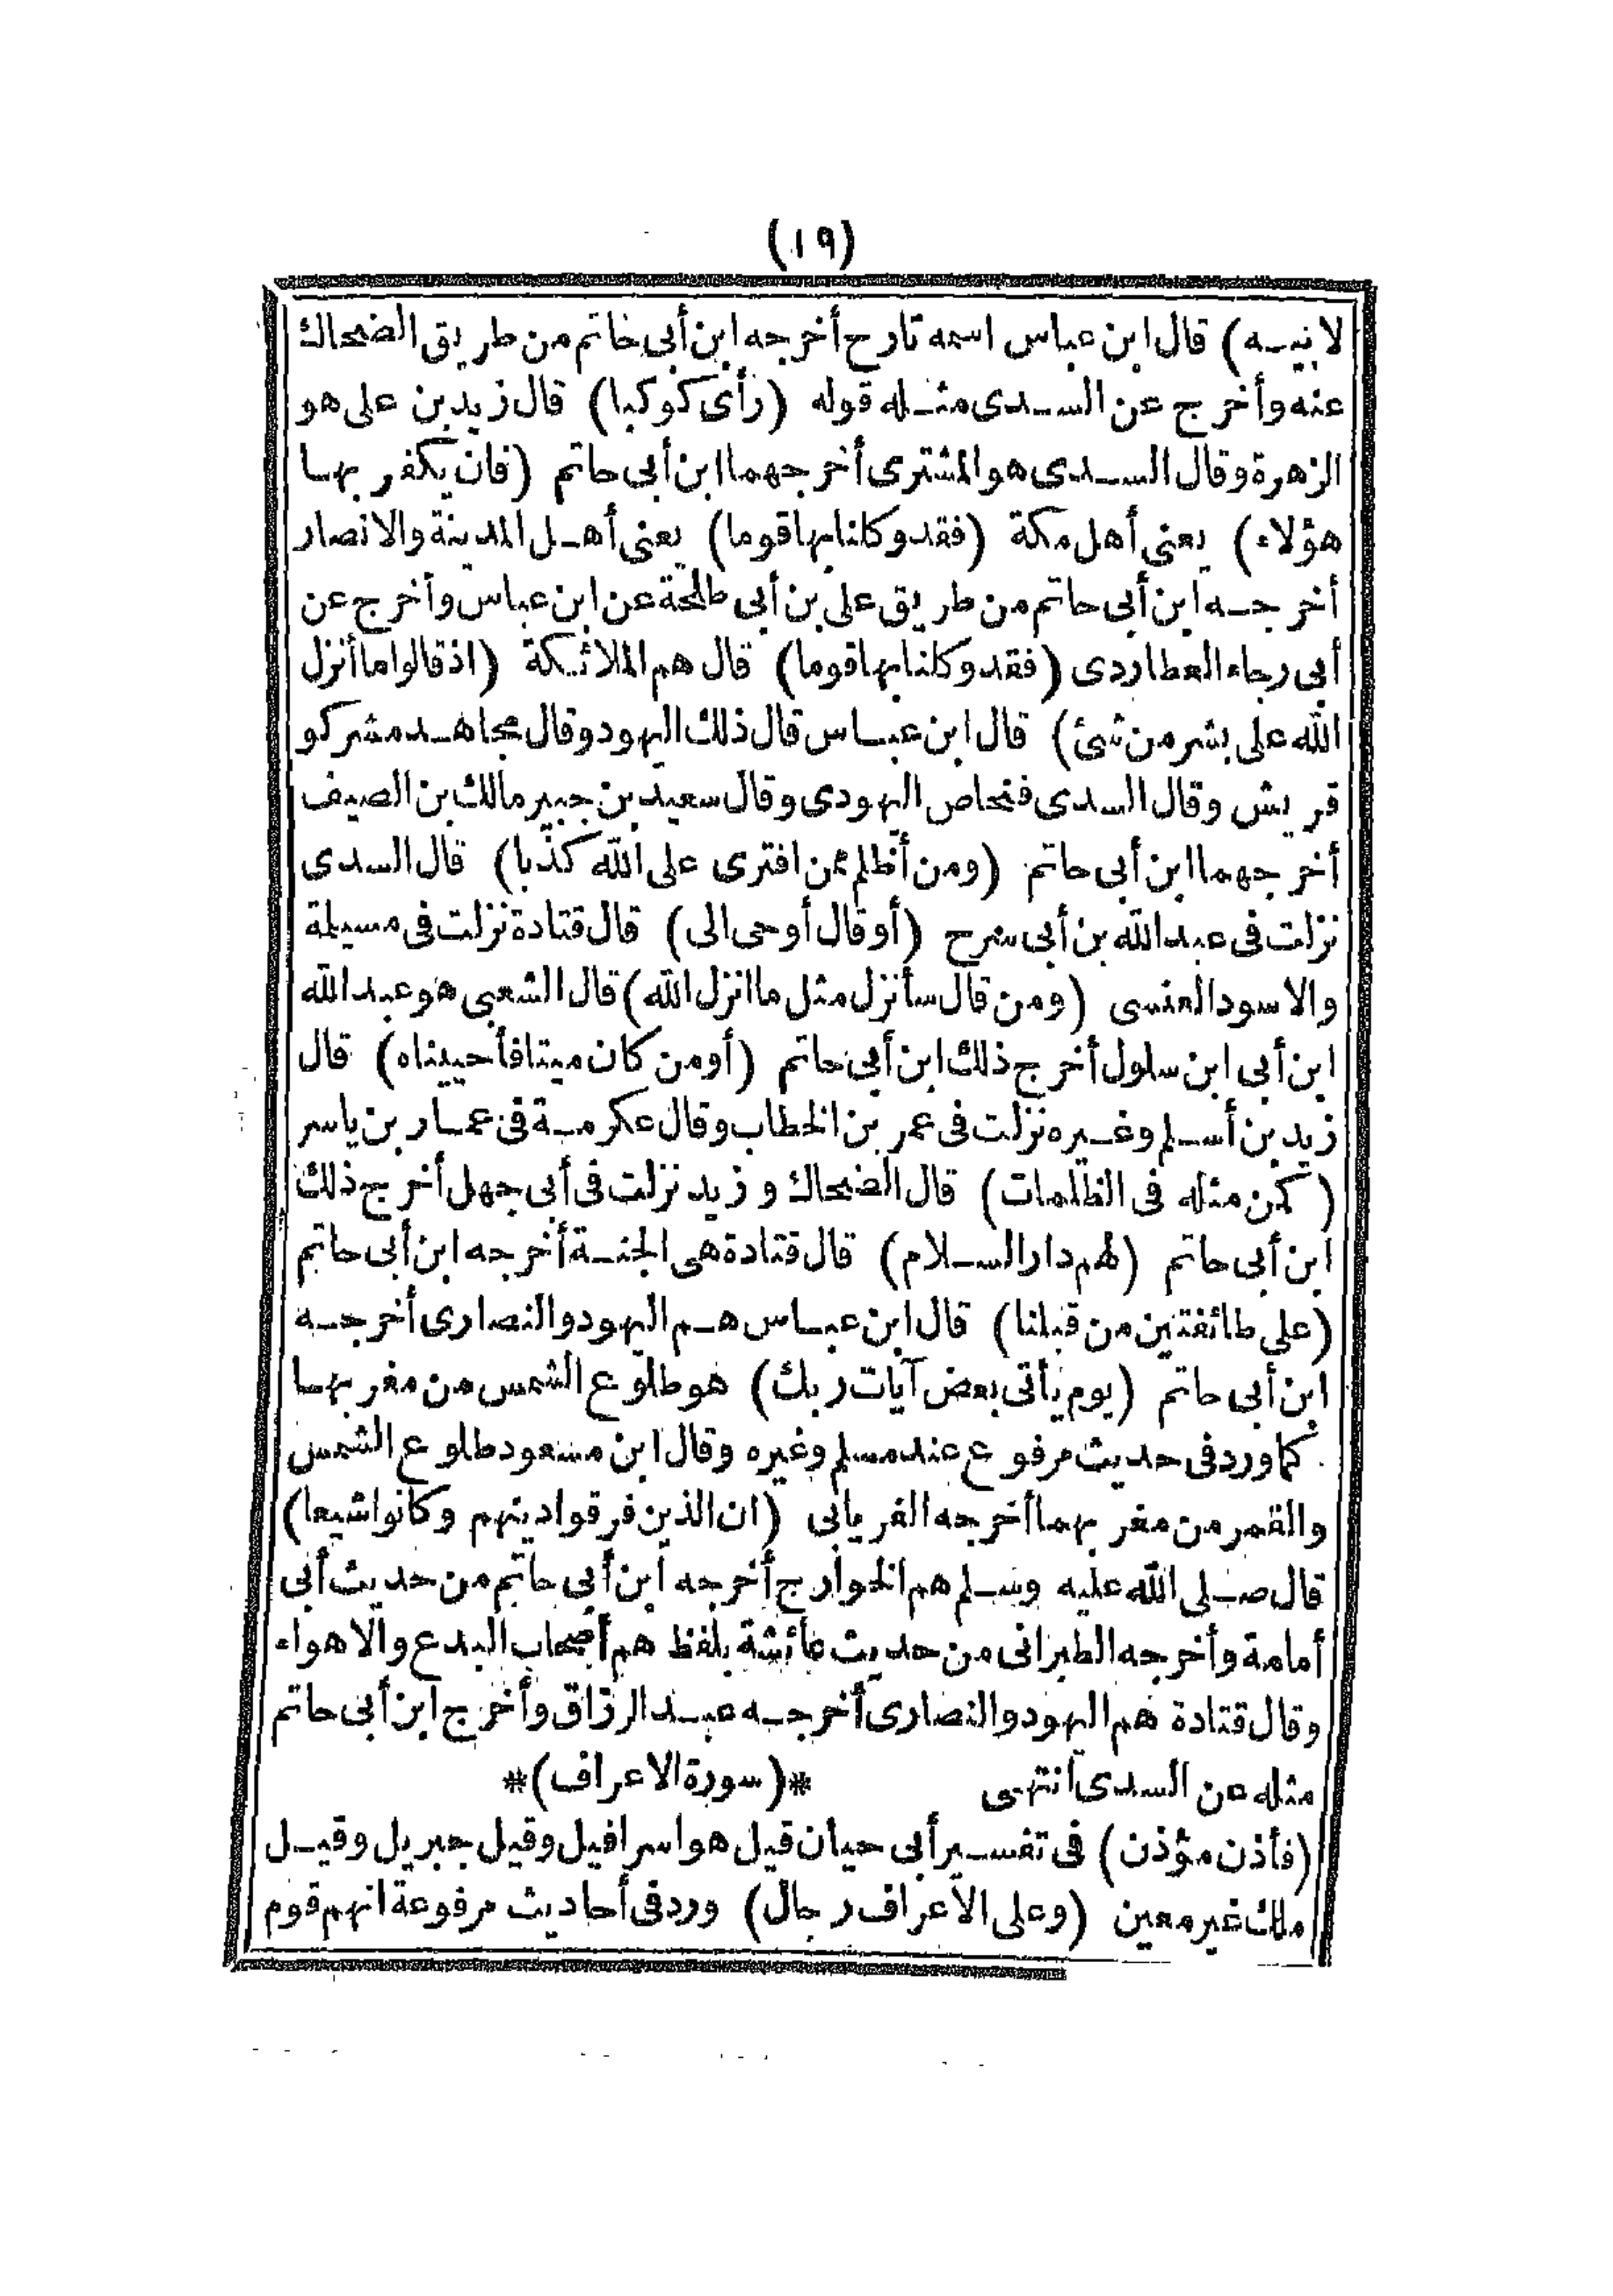 (١٩)
لابيه) قال ابن عباس اسمه تارح أخرجه ابن أبى حاتم من طريق الضحاك
عنه وأخرج عن السدى مثله قوله (رأى كوكبا) قال زيد بن على هو
الزهرة وقال السدى هو المشترى أخرجهما ابن أبى حاتم (فان يكفر بها
هؤلاء) يعنى أهل مكة (فقد وكلنا بها قوما) يعنى أهل المدينة والانصار
أخرجه ابن أبى حاتم من طريق على بن أبى طلحة عن ابن عباس وأخرج عن
أبى رجاء العطاردى (فقد وكلنا بها قوما) قال هم الملائكة (اذ قالوا ما أنزل
الله على بشر من شئ) قال ابن عباس قال ذلك اليهود وقال مجاهد مشركو
قريش وقال السدى فنحاص اليهودى وقال سعيد بن جبير مالك بن الصيف
أخرجهما ابن أبى حاتم (ومن أظلم ممن افترى على الله كذبا) قال السدى
نزلت فى عبد الله بن أبى سرح (أو قال أوحى الى) قال قتادة نزلت فى مسيلمة
والاسود العنسى (ومن قال سأنزل مثل ما انزل الله) قال الشعبى هو عبد الله
ابن أبى ابن سلول أخرج ذلك ابن أبى حاتم (أو من كان ميتا فأحييناه) قال
زيد بن أسلم وغيره نزلت فى عمر بن الخطاب وقال عكرمة فى عمار بن ياسر
(كمن مثله فى الظلمات) قال الضحاك وزيد نزلت فى أبى جهل أخرج ذلك
ابن أبى حاتم (لهم دار السلام) قال قتادة هى الجنة أخرجه ابن أبى حاتم
(على طائفتين من قبلنا) قال ابن عباس هم اليهود والنصارى أخرجه
ابن أبى حاتم (يوم يأتى بعض آيات ربك) هو طلوع الشمس من مغربها
كما ورد فى حديث مرفوع عند مسلم وغيره وقال ابن مسعود طلوع الشمس
والقمر من مغربهما أخرجه الفريابى (ان الذين فرقوا دينهم وكانوا شيعا)
قال صلى الله عليه وسلم هم الخوارج أخرجه ابن أبى حاتم من حديث أبى
أمامة وأخرجه الطبرانى من حديث عائشة بلفظ هم أصحاب البدع والاهواء
وقال قتادة هم اليهود والنصارى أخرجه عبد الرزاق وأخرج ابن أبى حاتم
مثله عن السدى انتهى *(سورة الاعراف)*
(فأذن مؤذن) فى تفسير أبى حيان قيل هو اسرافيل وقيل جبريل وقيل
ملك غير معين (وعلى الاعراف رجال) ورد فى أحاديث مرفوعة انهم قوم